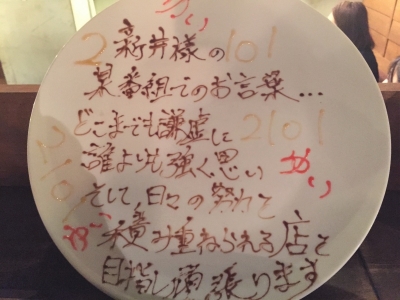 めい
2 新井様の 101
某番組でのお言葉…
どこまでも謙虚に 2101
誰よりも強く思い めい
2101 そして、日々の努力を
めい 積み重ねられる店を
目指し頑張ります